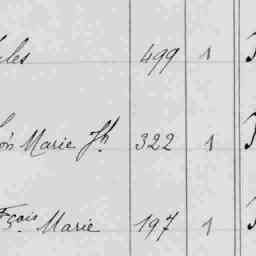 ules 499 1
on Marie Jh 322 1
Fçois Marie 197 1